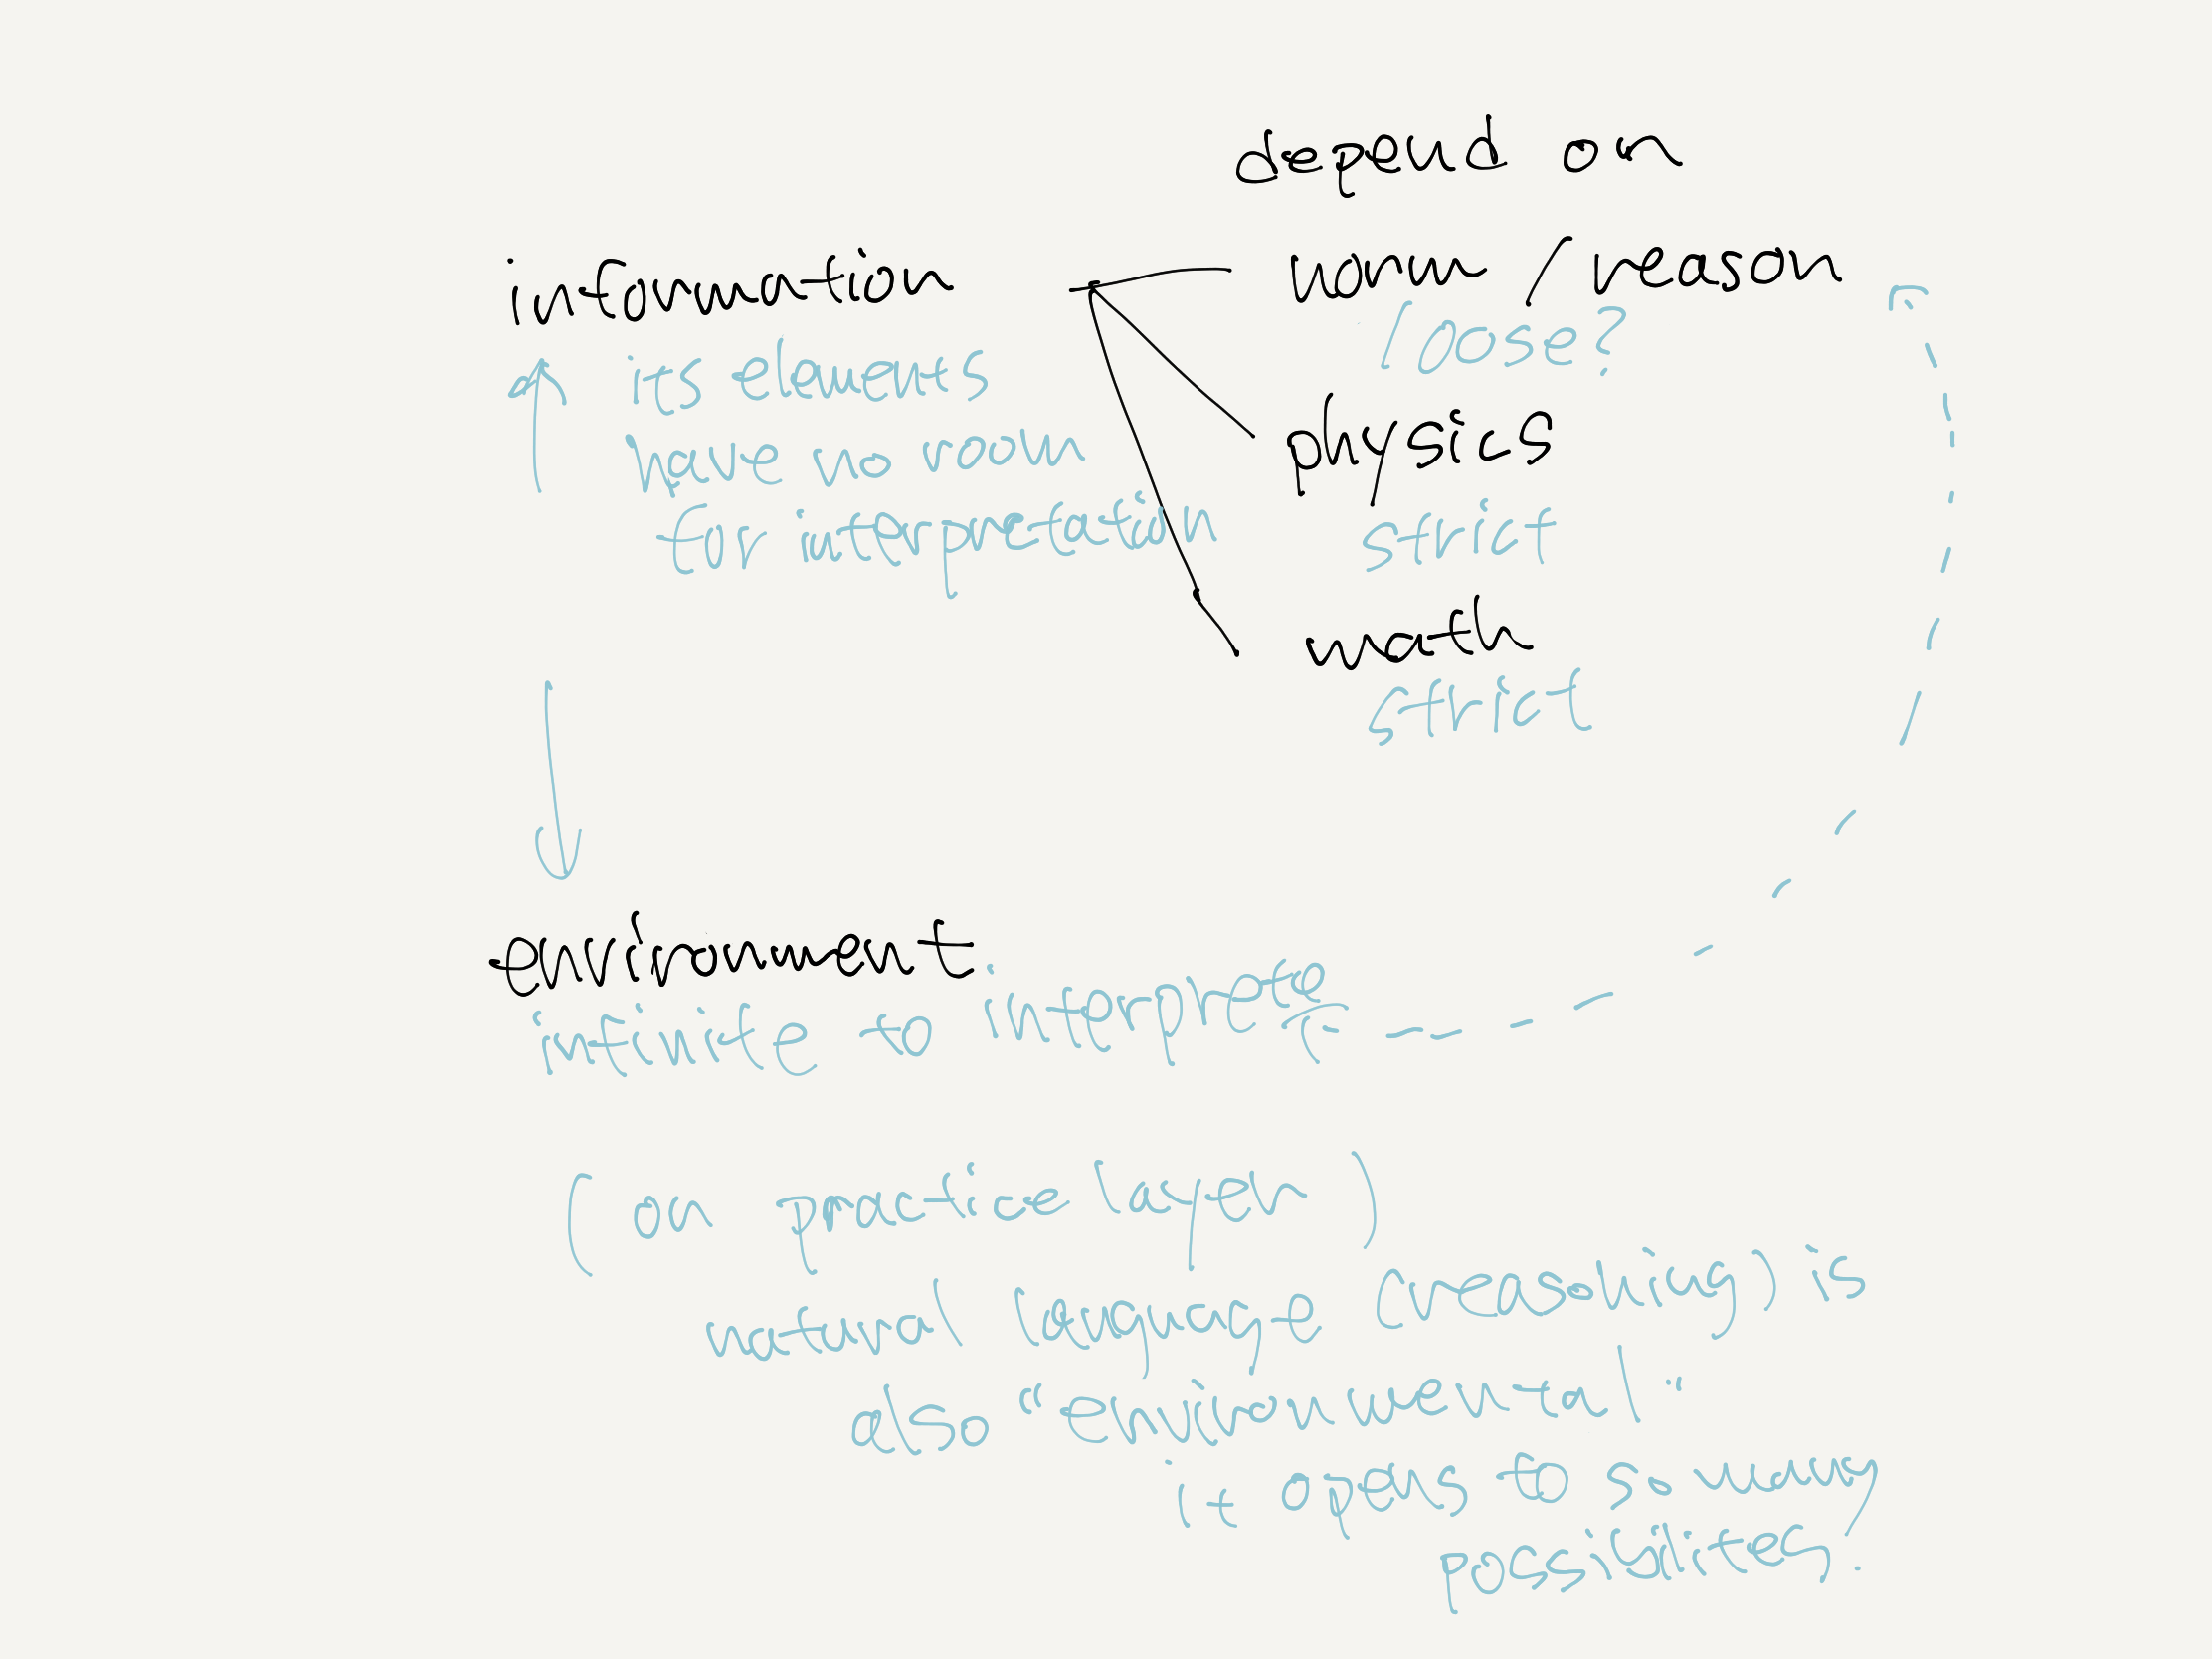 depend on
information
norm / reason
loose?
its elements
have no room
for interpretation
physics
strict
math
strict
environment
infinite to interprete
(on practice layer)
natural language (reasoning) is
also "environmental"
it opens to so many
possibilites.